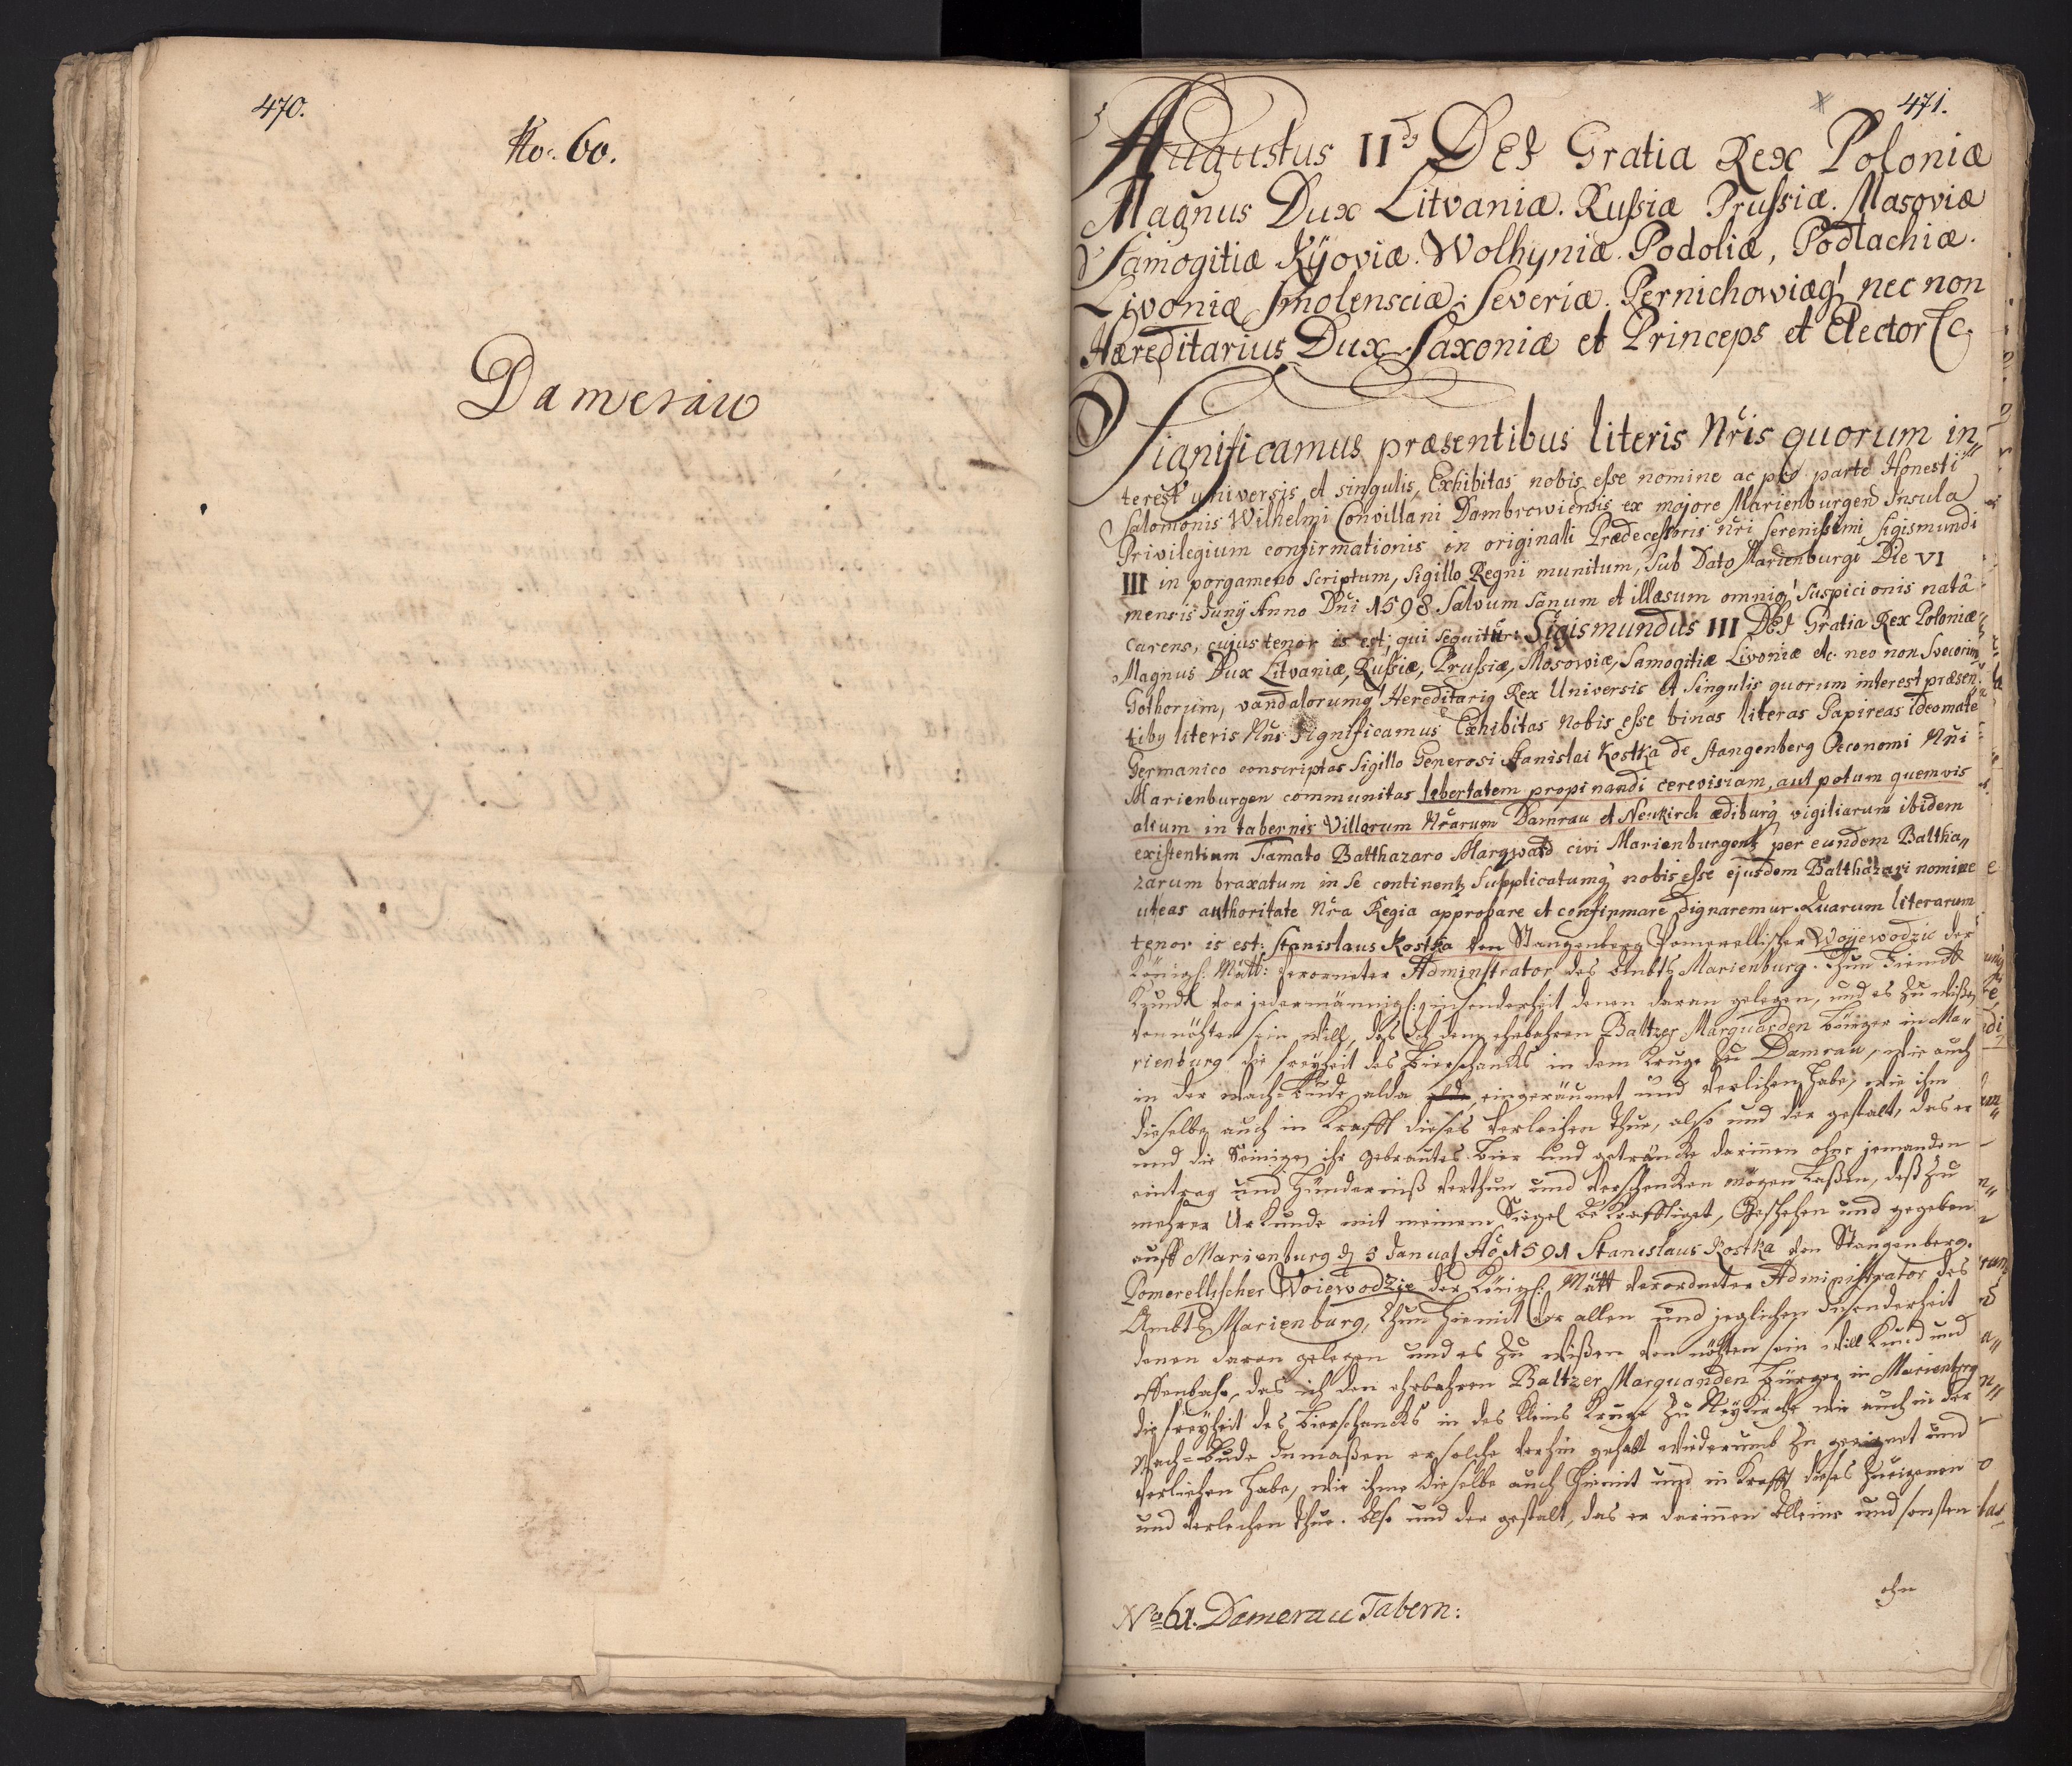 470.
No: 60.
Damerau
471.
Augustus IIdus DEI Gratia Rex Poloniæ
Magnus Dux Litvaniæ. Russiæ Prussiæ. Masoviæ
Samogitiæ Kÿoviæ. Wolhyniæ. Podoliæ, Podlachiæ.
Livoniæ Smolensciæ. Severiæ. Pernichowiæq' nec non
Hæreditarius Dux Saxoniæ et Princeps et Elector &c.
Significamus præsentibus literis Nr̃is quorum in„
terest universis et singulis, Exhibitas nobis esse nomine ac pro parte Honesti
Salomonis Wilhelmi Convillani Dambrowiensis ex majore Marienburgen Insula
Privilegium confirmationis in originali Prædecessoris nr̃i Serenissimi Sigismundi
III in porgameno scriptum, Sigillo Regni munitum, sub Dato Marienburgi Die VI
mensis Junÿ Anno Dn̄i 1598 Salvum sanum et illæsum omniq' suspicionis natâ
carens, cujus tenor is est, qui sequitur: Sigismundus III DEI Gratia Rex Poloniæ
Magnus Dux Litvaniæ, Russiæ, Prussiæ, Masowiæ, Samogitiæ Livoniæ etc. nec non Svecorum
Gothorum, vandalorumq' Hereditariq Rex Universis et Singulis quorum interest præsen„
tibq literis Nr̃is significamus Exhibitas Nobis esse binas literas Papireas Ideomate
Germanico conscriptas Sigillo Generosi Stanislai Kostka de Stangenberg Oeconomi Nr̃i
Marienburgen communitas libertatem propinandi cerevisiam, aut potum quemvis
alium in tabernis Villarum Nr̃arum Damrau et Neukirch ædibusq' vigiliarum ibidem
existentium Famato Balthazaro Margwatd civi Marienburgens per eundem Baltha„
zarum braxatum in se continent, supplicatumq' nobis esse ejusdem Balthazari nomine
uteas authoritate Nr̃a Regia approbare et confirmare dignaremur. Quarum literarum
tenor is est: Stanislaus Kostka von Stangenberg Pomerellischer Woÿewodzic der
Königl: Maÿtt: verorneter Adminstrator des Ambts Marienburg. Thun hiemitt
Kundt vor jedermänniglich insonderheit denen daran gelegen, und es zu wißen
vonnöhten sein will, das Ich dem ehrbahren Baltzer Marquarden bürger in Ma„
rienburg die freÿheit des Bierschancks in dem Kruge zu Damrau, wie auch
in der wach=Bude alda eingeräumet und verliehen habe, wie ihm
dieselbe auch in Krafft dieses verleihen thue, also und der gestalt, das er
und die Seinigen ihr gebrautes bier und getrâncke darinnen ohne jemanden
eintrag und hünderniß verthun und verschencken mögen laßen, deß zu
mehrer Urkunde mit meinem Siegel bekrafftiget, Geschehen und gegeben
auff Marienburg d 3 Januar Aõ 1591 Stanislaus Kostka von Stangenberg.
Pomerellischer Woiewodzic der Königl: Maÿtt verordneter Administrator des
Ambts Marienburg, Thun hiemit vor allen und jeglichen Insonderheit
denen daran gelegen und es zu wißen von nöhten sein will Kund und
offenbahr, das ich den ehrbahren Baltzer Marquanden bürger in Marienburg
die freÿheit des Bierschancks in des Kleins Kruge zu Neÿkirche wie auch in der
Wach=Bude inmaßen er solche vorhin gehabt wiederumb zu geeignet und
verliehen habe, wie ihme dieselbe auch hiemit und in Krafft dieses zueigenen
und verlechen thue. Also und der gestalt, das er darinnen alleine und sonsten
ohn
No 61. Damerau Tabern: